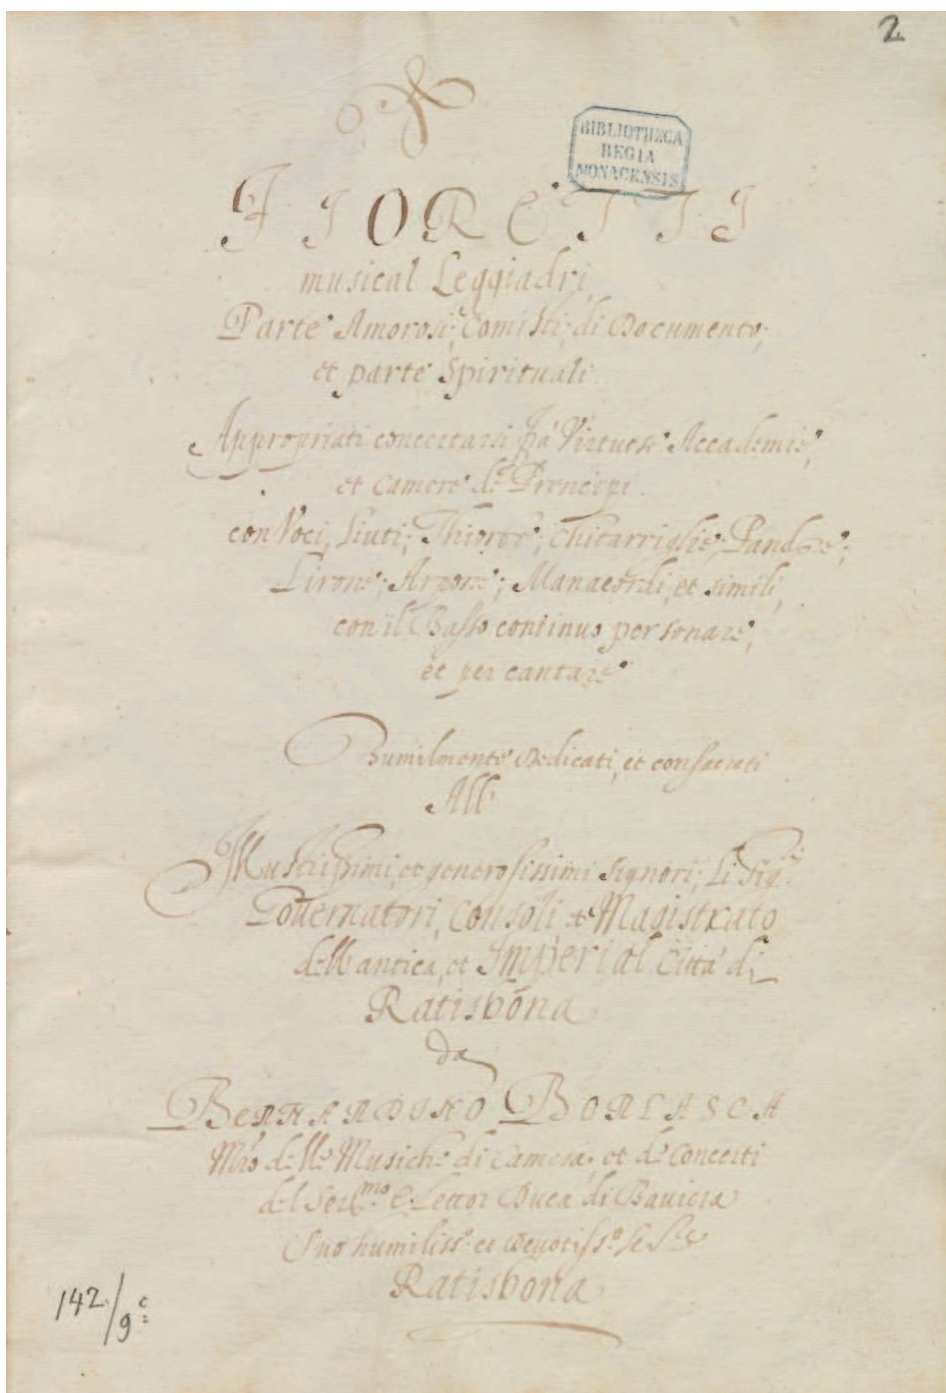 2
BIBLIOTHECA
REGIA
MONACENSIS
FIORETTI
musical Leggiadri,
Parte Amorosi; Comisti; di Documento;
et parte Spirituali.
Appropriati concertarsi fra Virtuose Accademie,
et Camere de Prencipi.
con Voci, Liuti; Thiorbe; Chitarriglie; Pandore;
Lirone; Arpone; Manacordi, et simili,
con il Basso continuo per sonare,
et per cantare
Humilmente Dedicati, et consacrati
Alli
Illustrissimi, et generosissimi Signori; Li Sigri
Governatori, Consoli et Magistrato
dell antica, et Imperial Città di
Ratisbona
da
BERNARDINO BORLASCA
Mro delle Musiche di Camera, et de Concerti
del Sermo Elettor Duca di Baviera
Suo humilisso et Devotisso
Ratisbona
142/9c